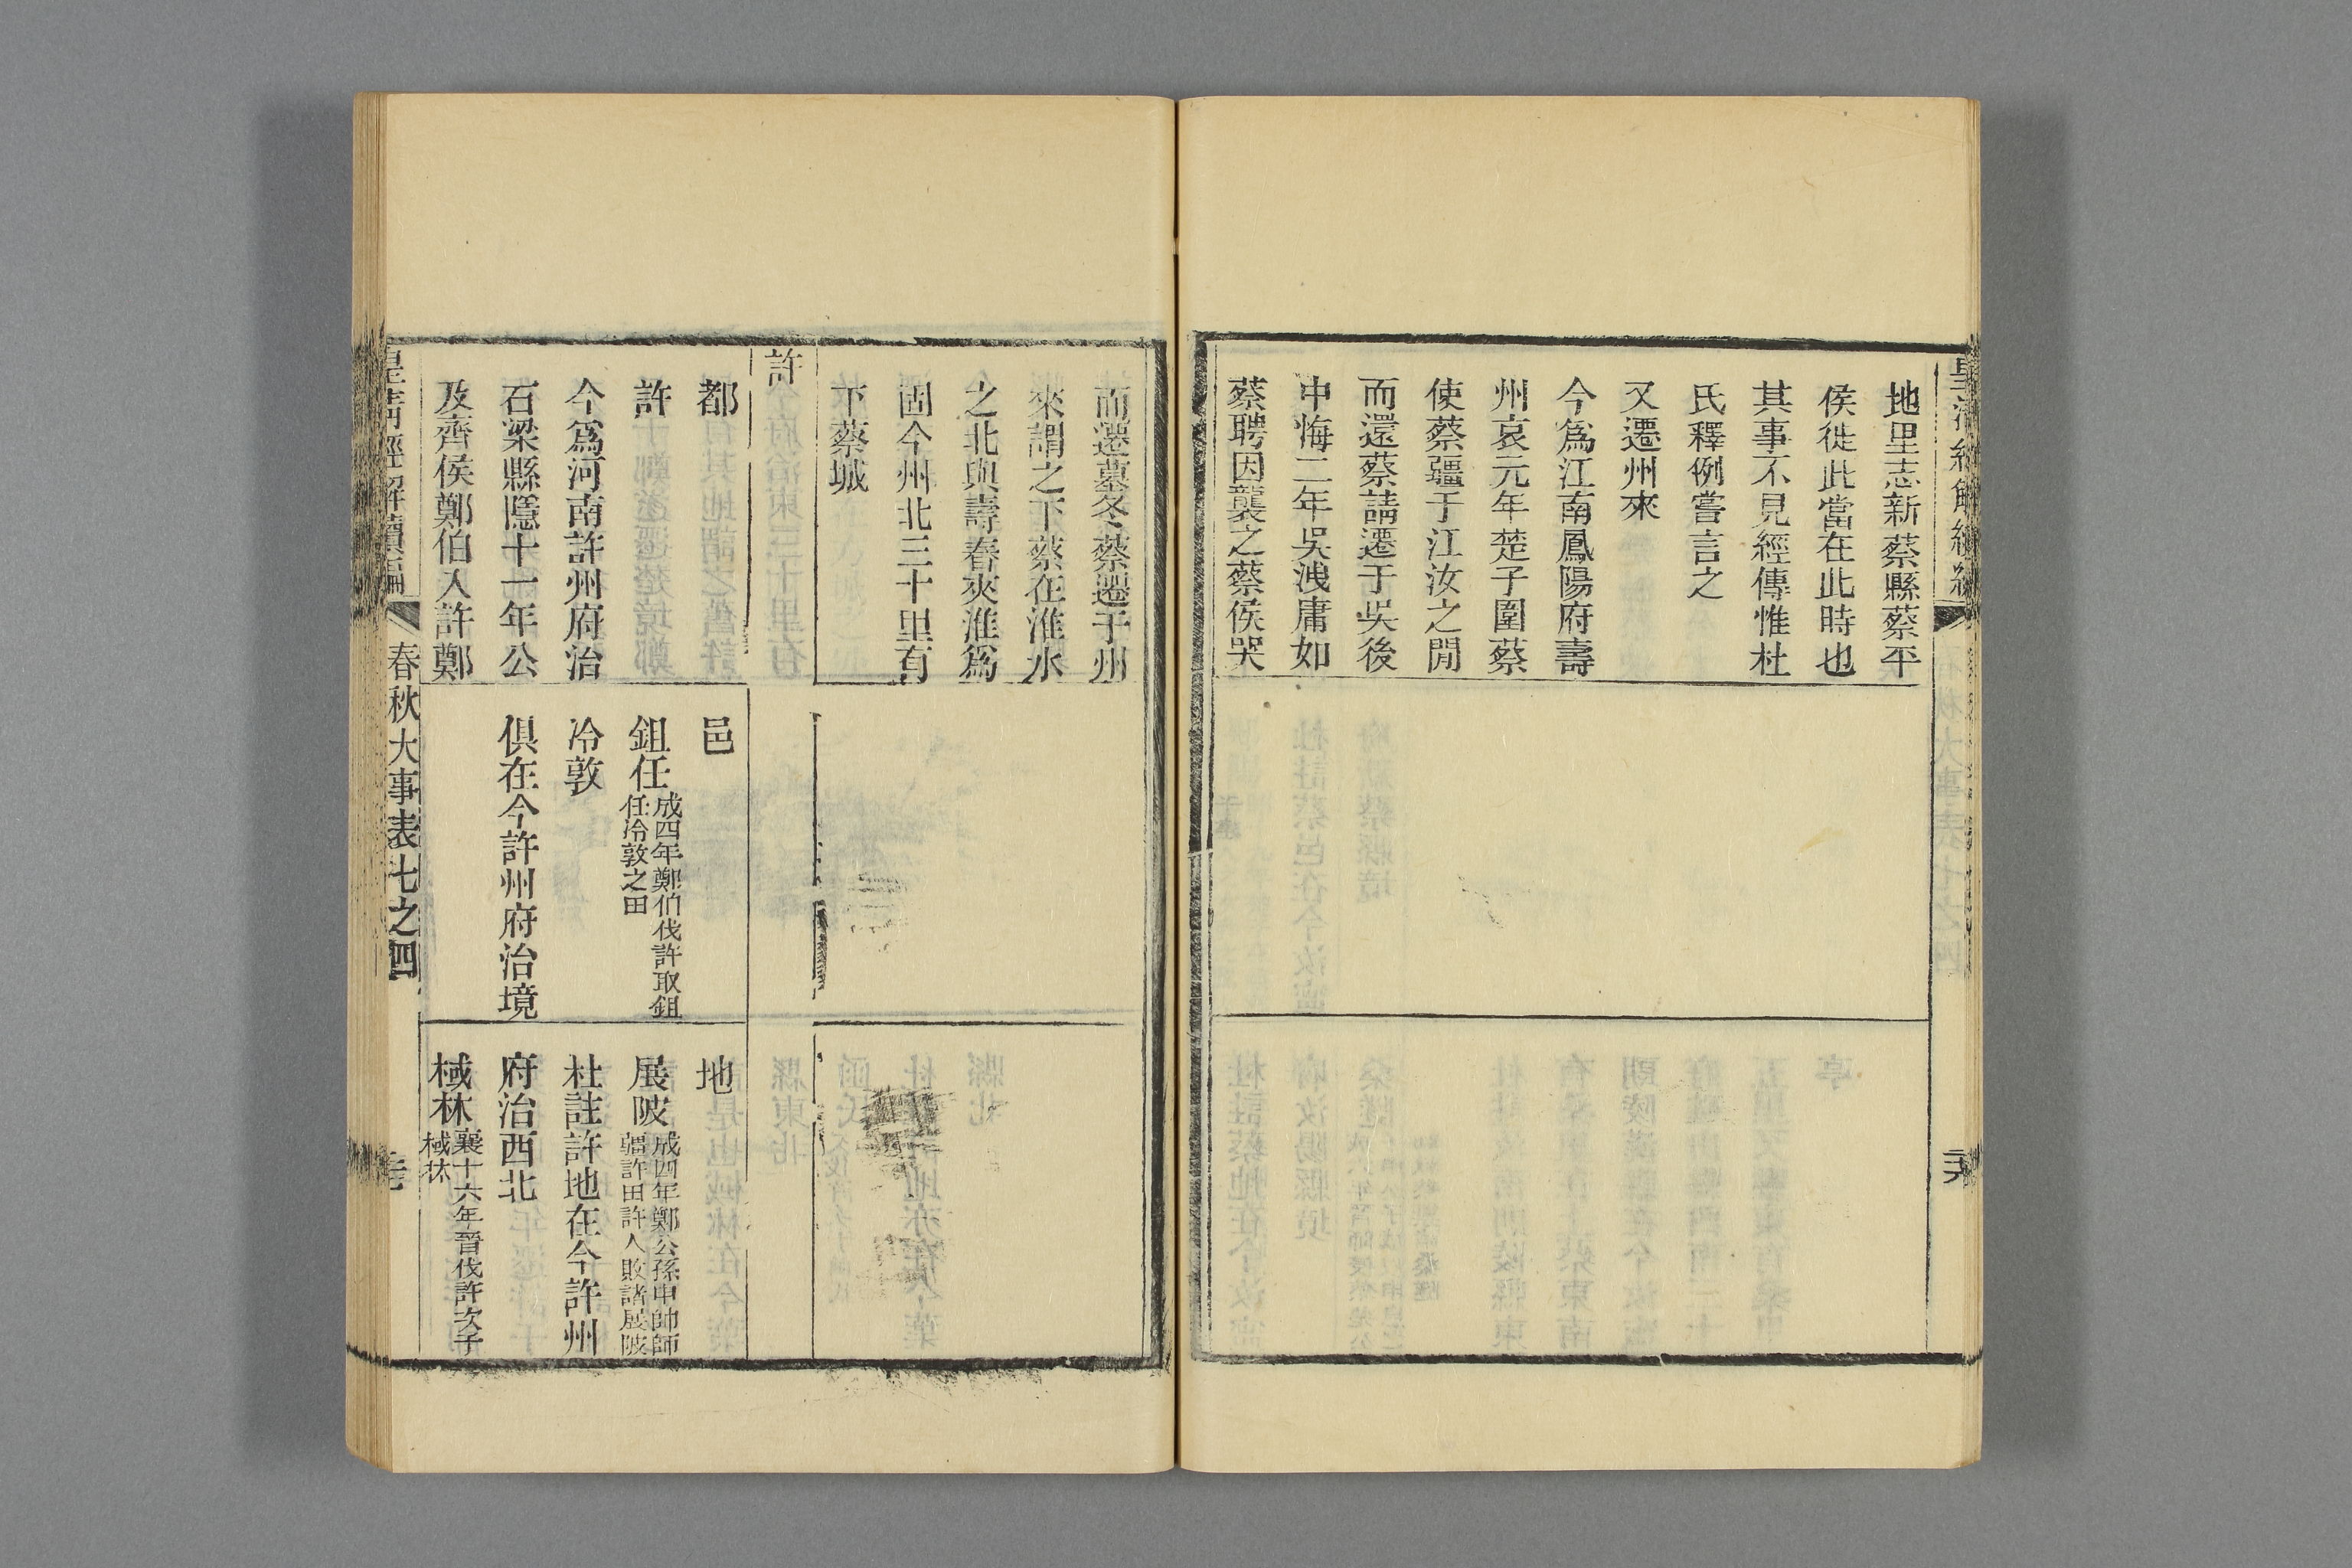 地里志新蔡縣蔡平
侯徙此當在此時也
其事不見經傳惟杜
氏釋例嘗言之
又遷州來
今爲江南鳳陽府壽
州哀元年楚子圍蔡
使蔡疆于江汝之閒
而還蔡請遷于吳後
中悔二年吳洩庸如
蔡聘因襲之蔡侯哭
而遷墓冬蔡遷于州
來謂之下蔡在淮水
之北與壽春夾淮爲
固今州北三十里有
下蔡城
許
都
許
今爲河南許州府治
石梁縣隱十一年公
及齊侯鄭伯入許鄭
邑
鉏任成四年鄭伯伐許取鉏
任冷敦之田
冷敦
俱在今許州府治境
地
展陂成四年鄭公孫申帥師
疆許田許人敗諸展陂
杜註許地在今許州
府治西北
棫林襄十六年晉伐許次于
棫林
皇清經解續編
春秋大事表七之四